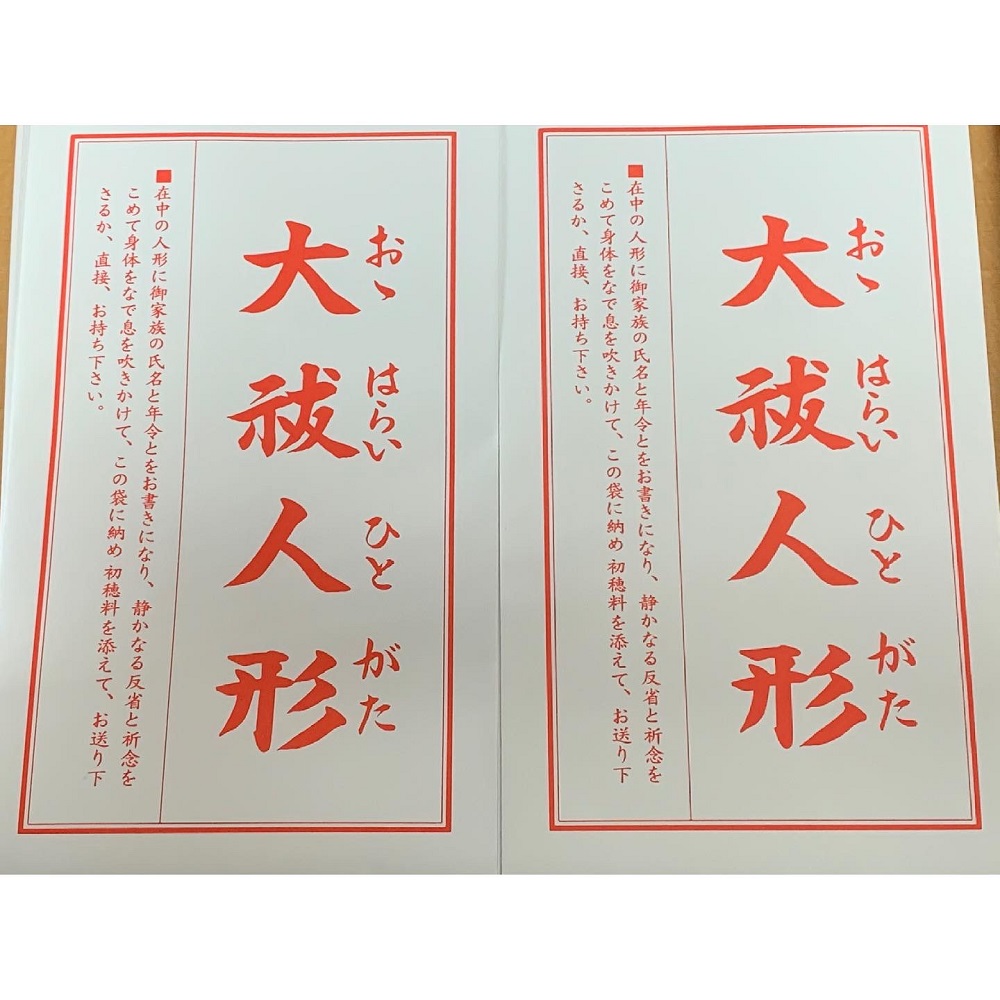 おゝはらいひとがた
大祓人形
■在中の人形に御家族の氏名と年令とをお書きになり、静かなる反省と祈念を
こめて身体をなで息を吹きかけて、この袋に納め 初穂料を添えて、お送り下
さるか、直接、お持ち下さい。
おゝはらいひとがた
大祓人形
■在中の人形に御家族の氏名と年令とをお書きになり、静かなる反省と祈念を
こめて身体をなで息を吹きかけて、この袋に納め 初穂料を添えて、お送り下
さるか、直接、お持ち下さい。